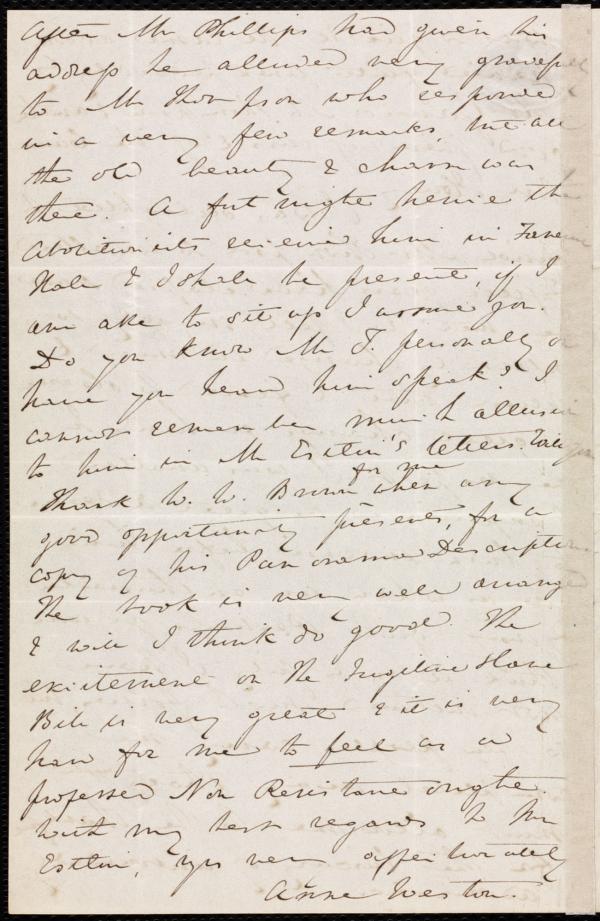 After Mr Phillips had given his
address he alluded very gracefully
to Mr Thompson who responded
in a very few remarks, but all
the old beauty & charm was
there. A fortnight hence the
Abolitionists receive him in Faneuil
Hall & I shall be present, if I
am able to sit up I assure you.
Do you know Mr T. personally or
have you heard him speak? I
cannot remember much allusion
to him in Mr Estlin's letters. Will you
thank W. W. Brown for me when any
good opportunity presents, for a
copy of his Panorama Description.
The book is very well arranged
& will I think do good. The
excitement on the Fugitive Slave
Bill is very great & it is very
hard for me to feel as a
professed Non Resistant ought.
With my best regards to Mr
Estlin, yrs very affectionately
Anne Weston.